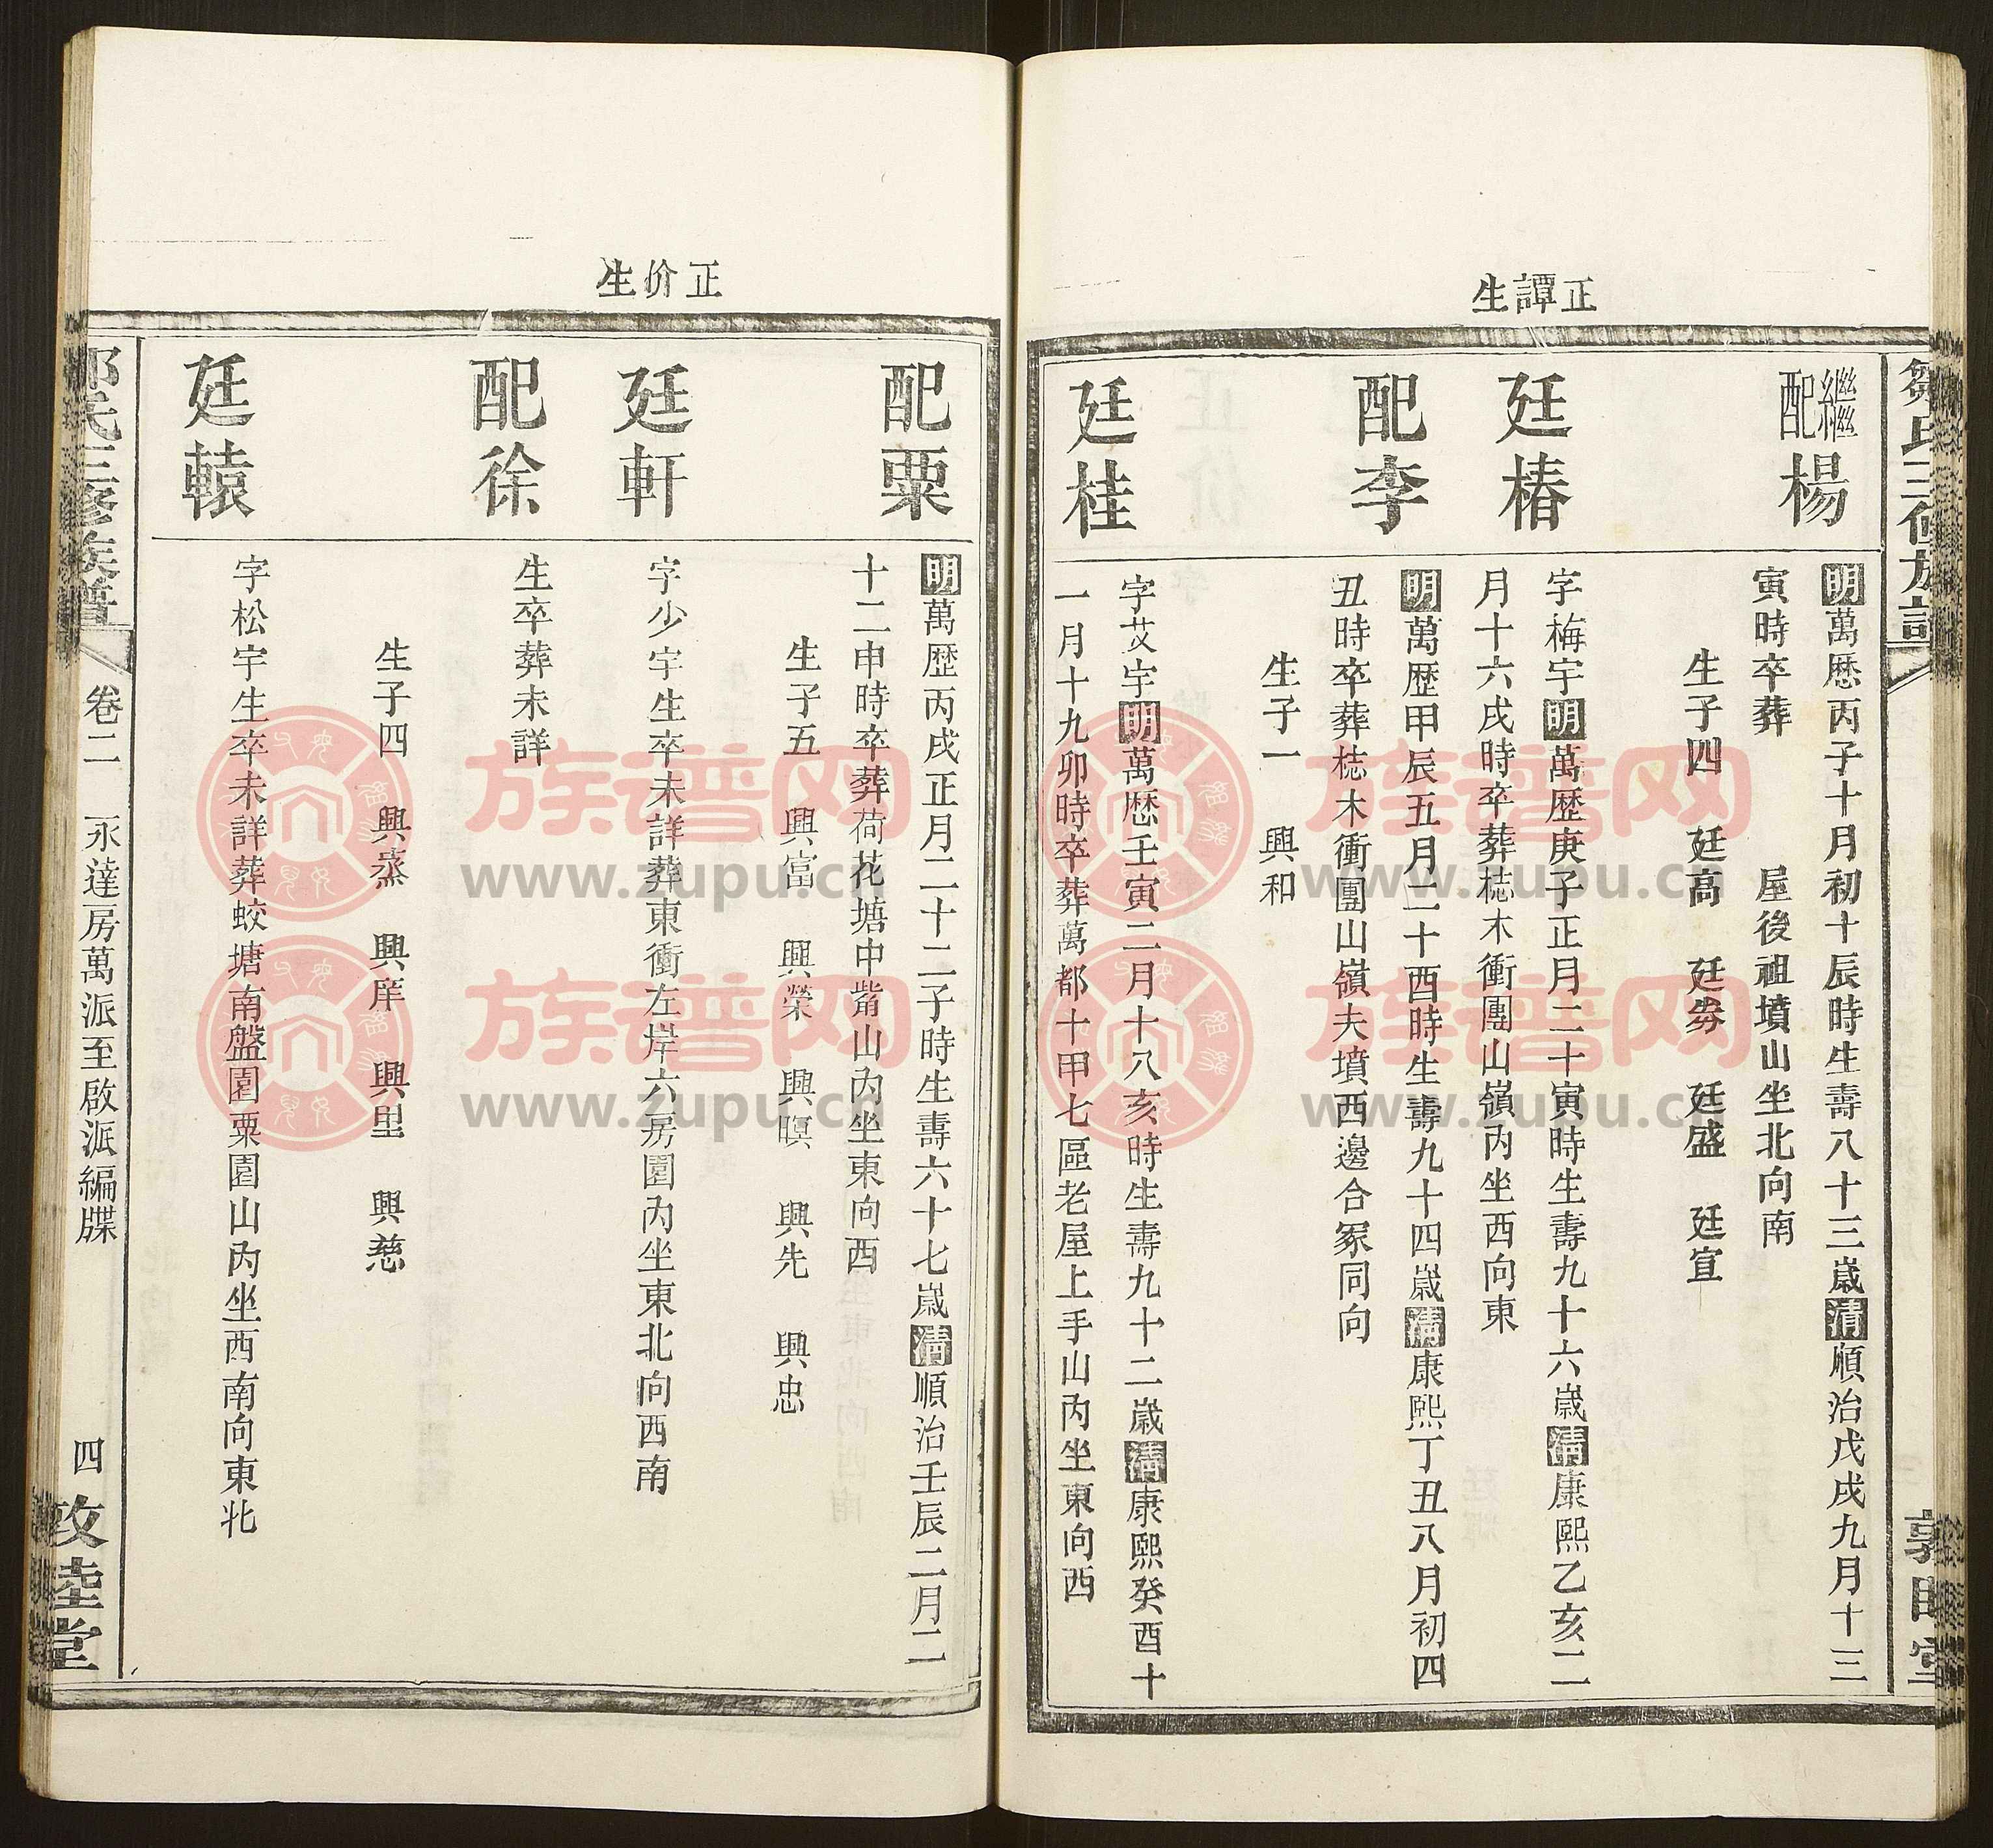 正譚生
繼配楊
明萬歷丙子十月初十辰時生壽八十三歲清順治戊戌九月十三
寅時卒葬　屋後祖墳山坐北向南
生子四　廷高　廷劵　廷盛　廷宣
廷椿
字梅宇明萬歷庚子正月二十寅時生壽九十六歲清康熙乙亥二
月十六戌時卒葬梽木衝團山嶺內坐西向東
配李
明萬歷甲辰五月二十酉時生壽九十四歲清康熙丁丑八月初四
丑時卒葬梽木衝團山嶺夫墳西邊合冢同向
生子一　興和
廷桂
字艾宇明萬歷壬寅二月十八亥時生壽九十二歲清康熙癸酉十
一月十九卯時卒葬萬都十甲七區老屋上手山內坐東向西
正价生
配粟
明萬歷丙戌正月二十二子時生壽六十七歲清順治壬辰二月二
十二申時卒葬荷花塘中觜山內坐東向西
生子五　興富　興榮　興暝　興先　興忠
廷軒
字少宇生卒未詳葬東衝左岸六房園內坐東北向西南
配徐
生卒葬未詳
生子四　興烝　興庠　興里　興慈
廷轅
字松宇生卒未詳葬蛟塘南盤園粟園山內坐西南向東北
氏三修族譜
卷二　永達房萬派至啟派編牒
四
敦睦堂
族譜网
www.zupu.cn
族譜网
www.zupu.cn
族譜网
www.zupu.cn
族譜网
www.zupu.cn